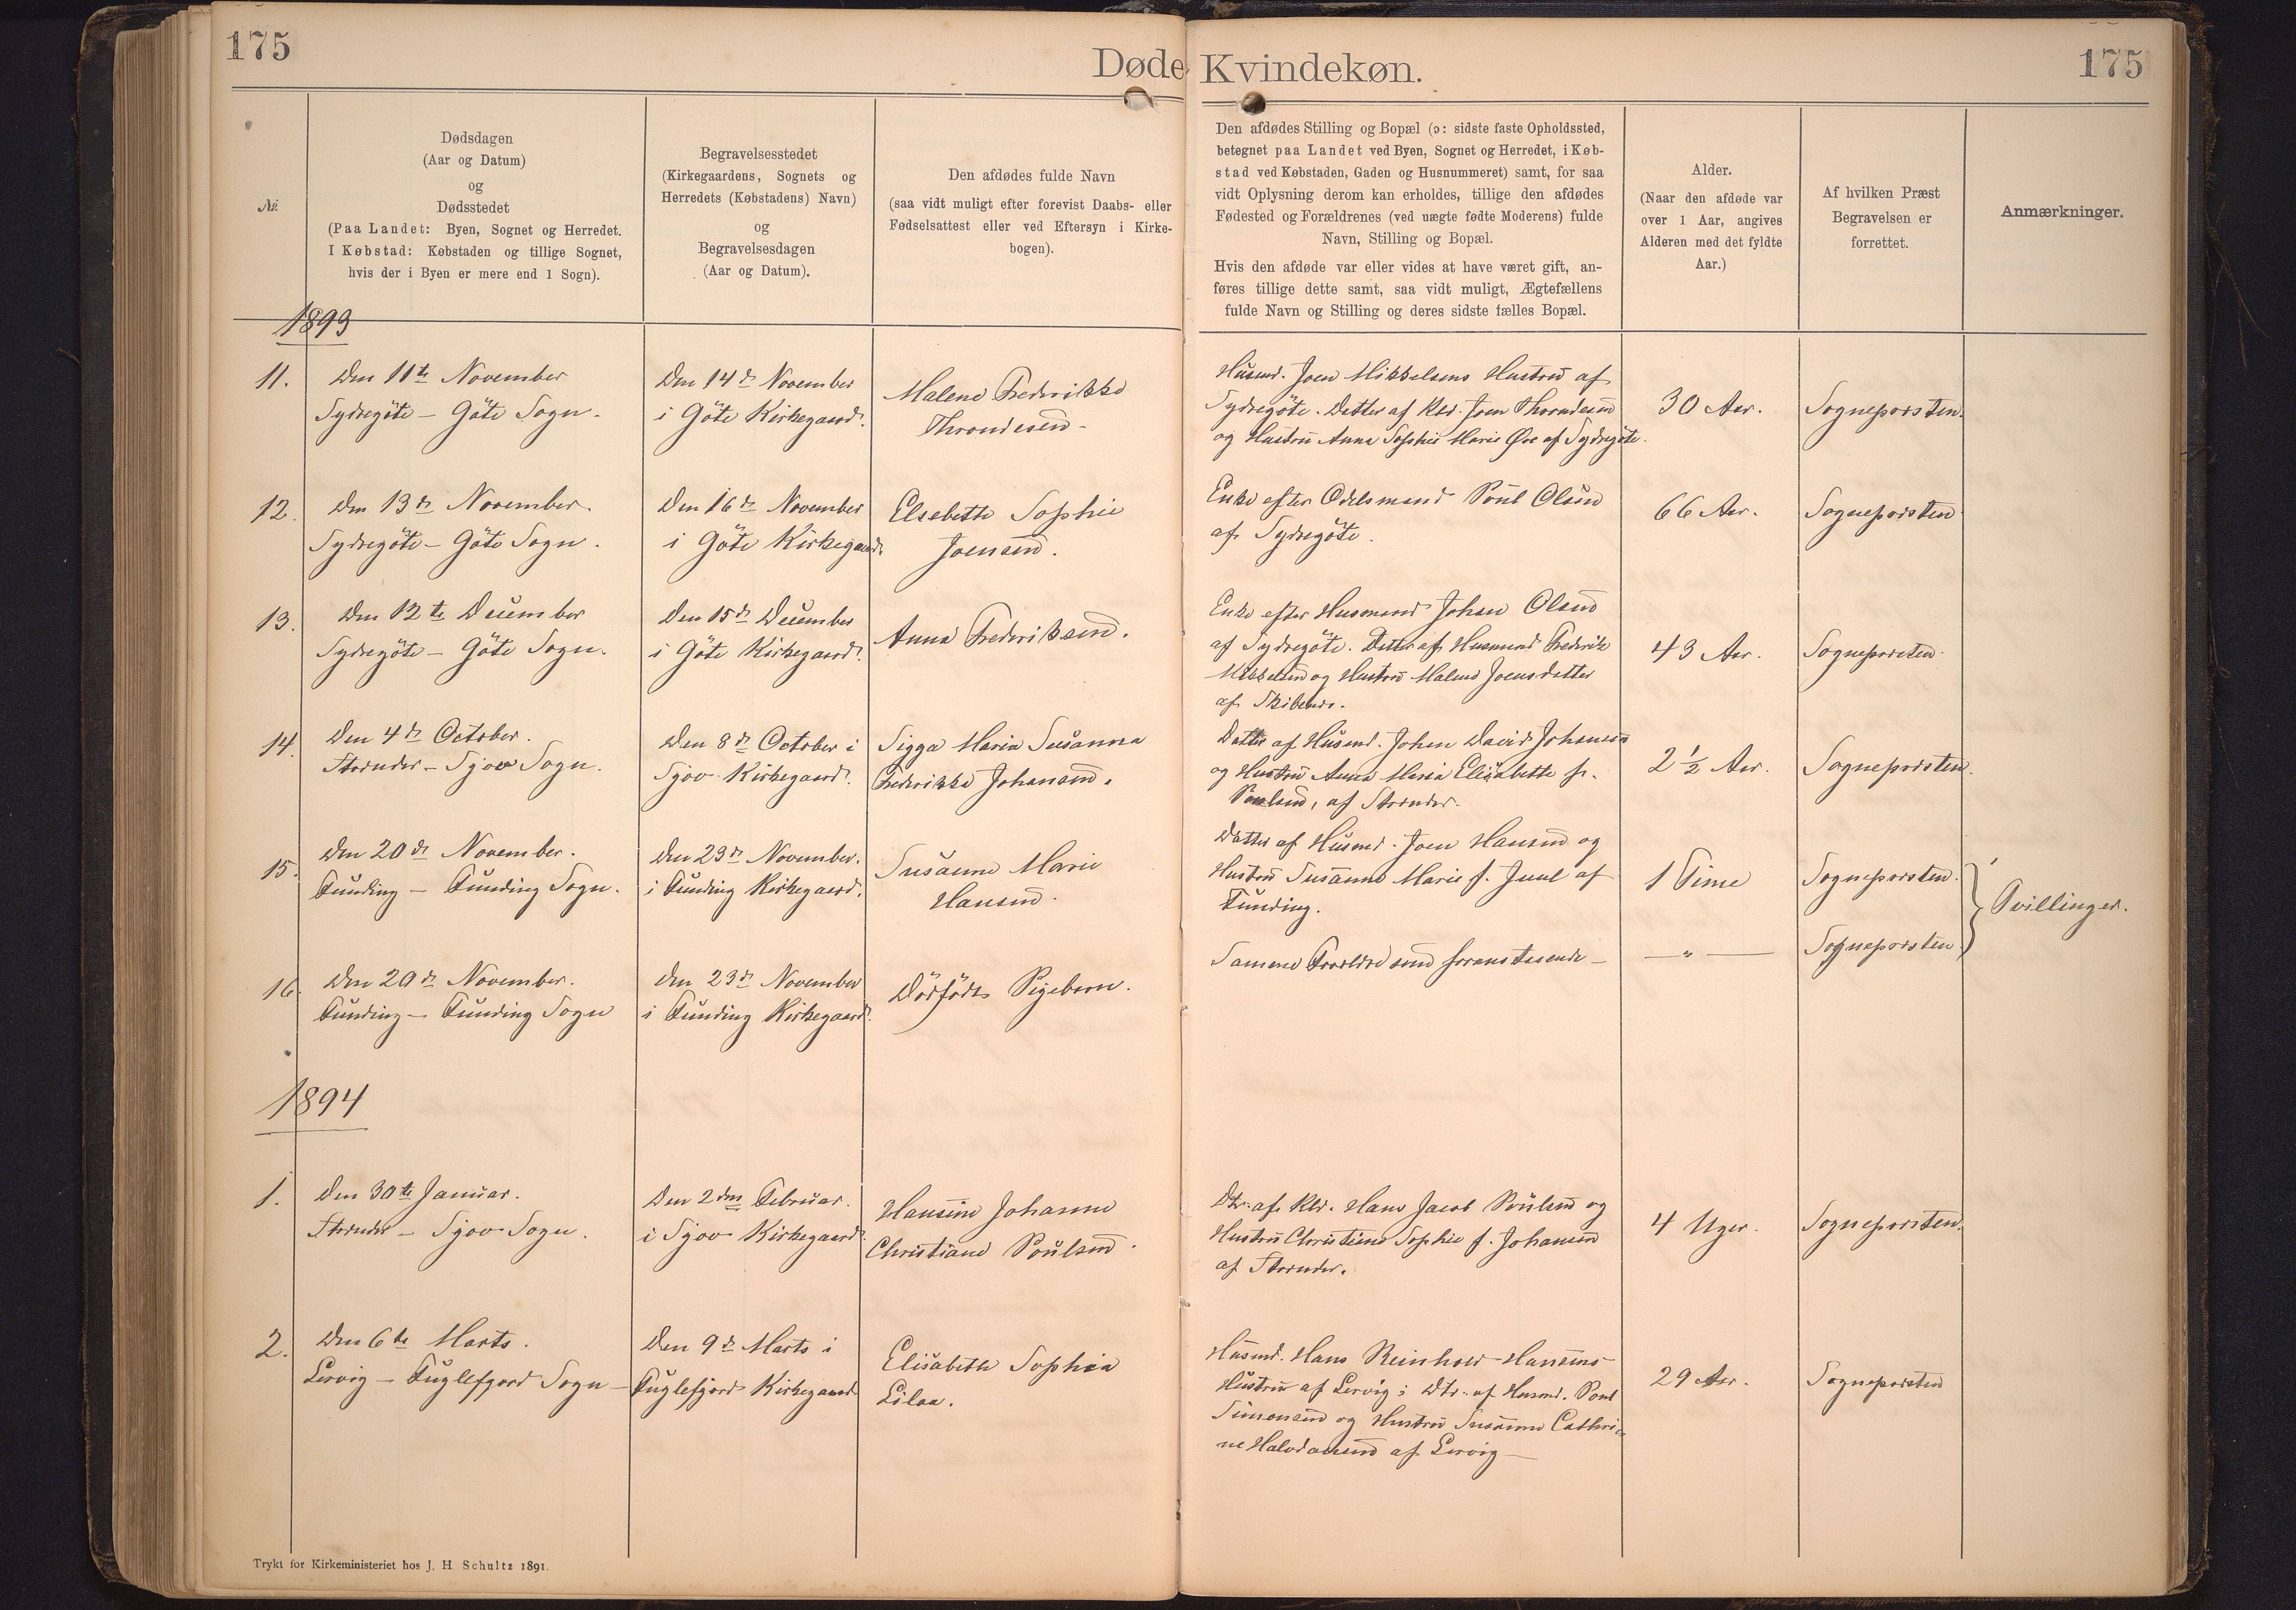 175
Døde Kvindekøn.
175
№
Dødsdagen
(Aar og Datum)
og
Dødsstedet
(Paa Landet: Byen, Sognet og Herredet.
I Købstad: Købstaden og tillige Sognet,
hvis der i Byen er mere end 1 Sogn).
Begravelsesstedet
(Kirkegaardens, Sognets og
Herredets (Købstadens) Navn)
og
Begravelsesdagen
(Aar og Datum).
Den afdødes fulde Navn
(saa vidt muligt efter forevist Daabs- eller
Fødselsattest eller ved Eftersyn i Kirke-
bogen).
Den afdødes Stilling og Bopæl (ɔ: sidste faste Opholdssted,
betegnet paa Landet ved Byen, Sognet og Herredet, i Køb-
stad ved Købstaden, Gaden og Husnummeret) samt, for saa
vidt Oplysning derom kan erholdes, tillige den afdødes
Fødested og Forældrenes (ved uægte fødte Moderens) fulde
Navn, Stilling og Bopæl.
Hvis den afdøde var eller vides at have været gift, an-
føres tillige dette samt, saa vidt muligt, Ægtefællens
fulde Navn og Stilling og deres sidste fælles Bopæl.
Alder.
(Naar den afdøde var
over 1 Aar, angives
Alderen med det fyldte
Aar.)
Af hvilken Præst
Begravelsen er
forrettet.
Anmærkninger.
1893
11.
Den 11te November
Sydregöte - Göte Sogn.
Den 14d November
i Göte Kirkegaard.
Malene Frederikke
Throndesen
Husmd. Joen Mikkelsens Hustru af
Sydregöte. Datter af Joen Throndesen
og Hustru Anna Sophie Marie af Sydregöte.
30 Aar.
Sognepræsten.
12.
Den 13d November.
Sydregöte - Göte Sogn.
Den 16d November
i Göte Kirkegaard.
Elsebeth Sophie
Joensen.
Enke efter Odelsmand Poul Olsen
af Sydregöte.
66 Aar.
Sognepræsten
13.
Den 12te December
Sydregöte - Göte Sogn.
Den 15d December
i Göte Kirkegaard.
Anna Frederiksen.
Enke efter Husmand Johan Olsen
af Sydregöte. Datter af Husmand Frederik
Mikkelsen og Hustru Malene Joensdatter
af
43 Aar.
Sognepræsten
14.
Den 4d October.
Strender - Sjov Sogn.
Den 8d October i
Sjov Kirkegaard.
Sigga Maria Susanna
Frederikka Johansen.
Datter af Husmd. Johan David Johansen
og Hustru Anna Maria Elisabeth f.
Poulsen, af Strender.
2 1/2 Aar.
Sognepræsten.
15.
Den 20d November.
Funding - Funding Sogn.
Den 23d November.
i Funding Kirkegaard.
Susanne Marie
Hansen.
Datter af Husmd. Joen Hansen og
Hustru Susanne Marie f. Juul af
Funding.
1 Time
Sognepræsten.
Tvillinger.
16.
Den 20d November.
Funding - Funding Sogn
Den 23d November
i Funding Kirkegaard.
Dödfödt Pigebarn.
Samme Forældre som foranstaaende -
— „ —
Sognepræsten
1894
1.
Den 30te Januar.
Strender - Sjov Sogn.
Den 2den Februar.
i Sjov Kirkegaard.
Hansine Johanne
Christiane Poulsen.
Dtr. af Hans Jacob Poulsen og
Hustru Christiane Sophie f. Johansen
af Strender.
4 Uger.
Sognepræsten.
2.
Den 6te Marts.
Lervig - Fuglefjord Sogn -
Den 9d Marts i
Fuglefjord Kirkegaard
Elisabeth Sophia
Lilaa.
Husmd. Hans Reinhold Hansens
Hustru af Lervig; Dtr. af Husmd. Poul
Simonsen og Hustru Susanne Cathri-
ne Halvdansen af Lervig -
29 Aar.
Sognepræsten
Trykt for Kirkeministeriet hos J. H. Schultz 1891.